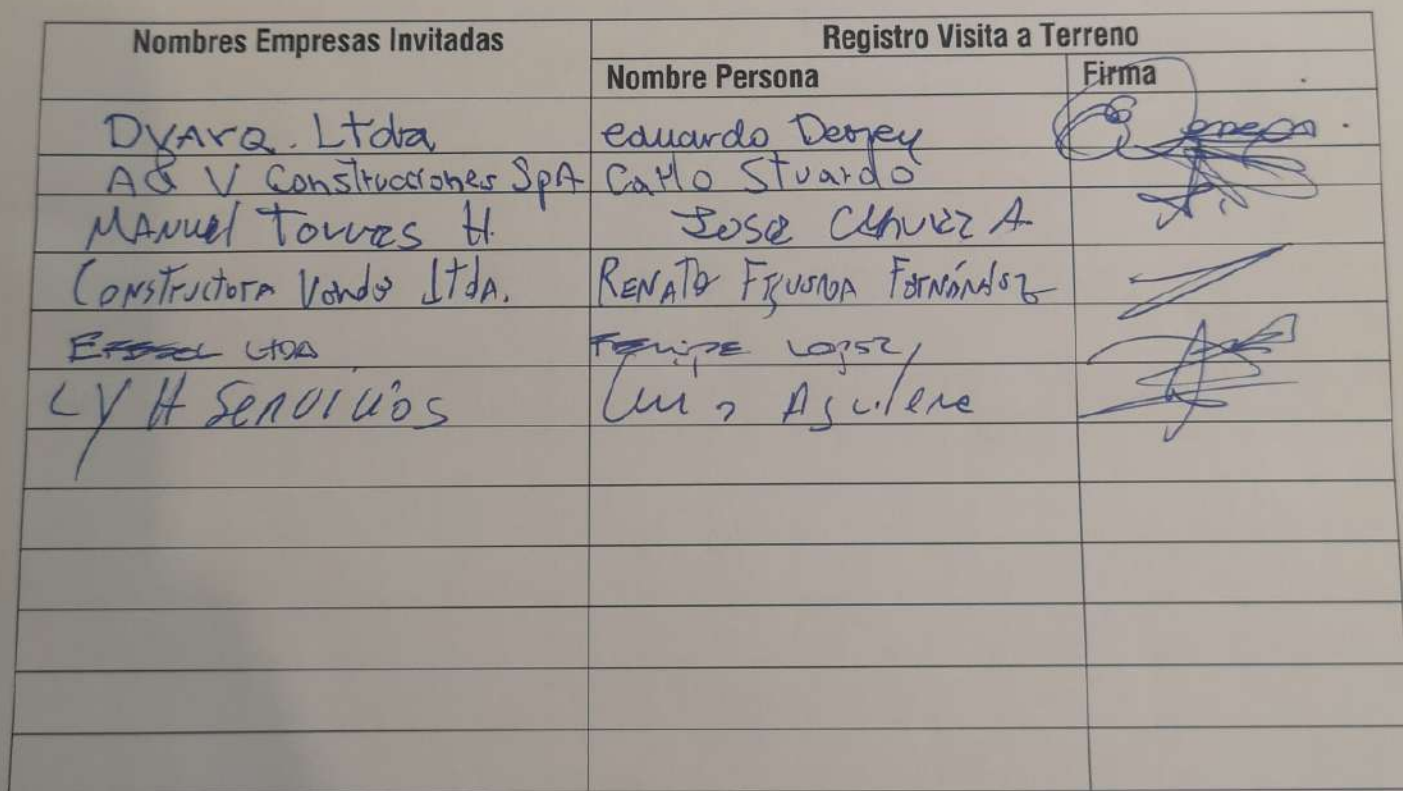 Nombres Empresas Invitadas Registro Visita a Terreno
Nombre Persona Firma
DyArq. Ltda eduardo
A&V Construcciones SpA Carlo Stuardo
MANUEL Torres H. Jose A
Constructora Ltda. RENATO Figueroa Fernández
LTDA Felipe Lopez
LYH Servicios Luis Aguilera